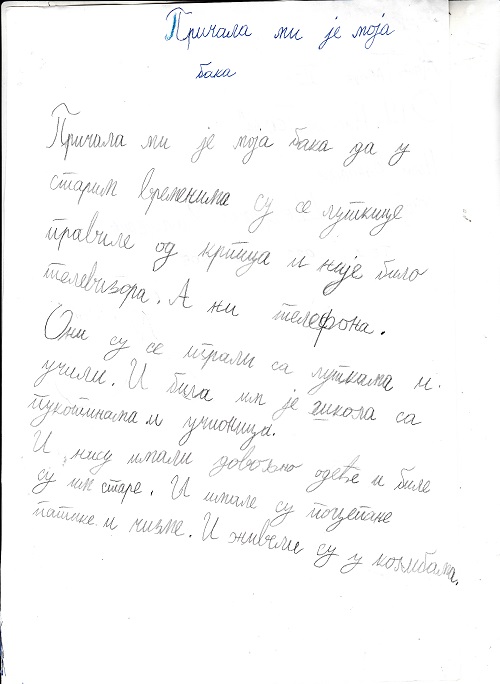 Причала ми је моја
бака
Причала ми је моја бака да у
старим временима су се луткице
правиле од крпица и није било
телевизора. А ни телефона.
Они су се играли са луткама и
учили. И била им је школа са
пукотинама и учионица.
И нису имали довољно одеће и биле
су им старе. И имале су поцепане
патике и чизме. И живели су у колибама.